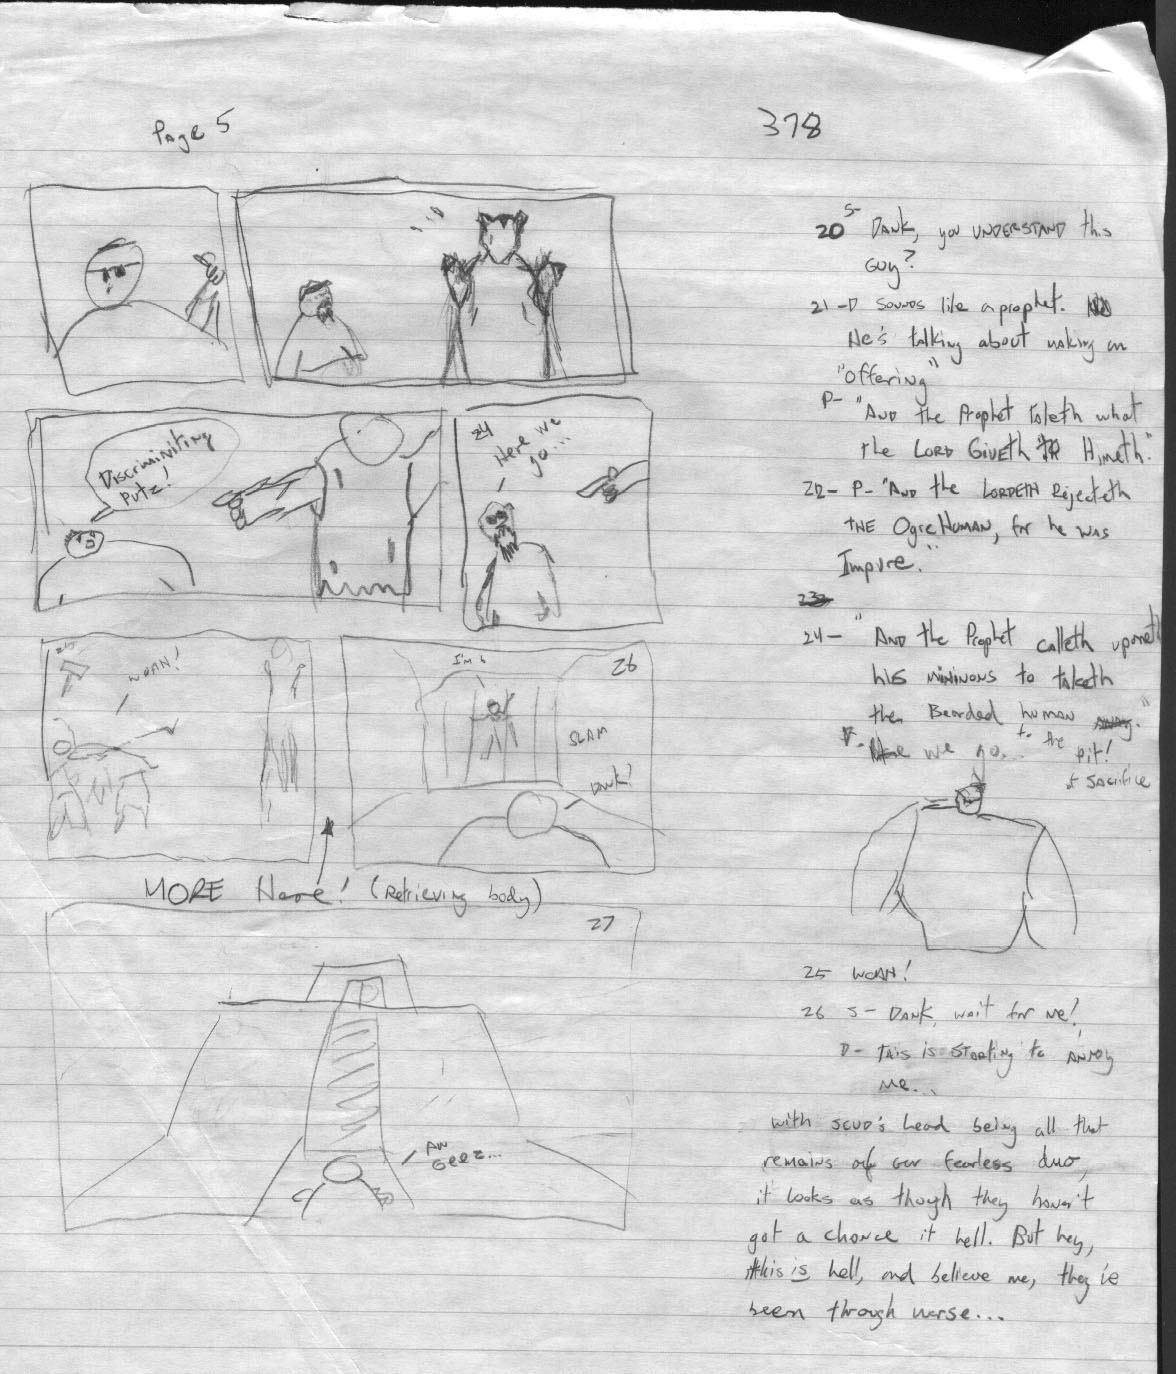 Page 5
378
Discriminiting
Putz!
24
Here we
go...
25
WOAH!
I'm b
26
SLAM
DANK?
MORE Here! (Retrieving body)
27
AW
Geez...
20 S- DANK, you UNDERSTAND this
Guy?
21 -D Sounds like a prophet.
He's talking about making an
"Offering"
P- "AND the Prophet toleth what
the LORD GIVETH Himeth."
22- P- "AND the LORDETH Rejecteth
THE OgreHUMAN, for he was
Impure."
23
24- "AND the Prophet calleth uponeth
his MININONS to taketh
the Bearded human away."
Here we go... to the pit!
of Sacrifice
25 WOAH!
26 S- DANK, wait for me!
D- This is starting to annoy
me...
with scud's head being all that
remains of our fearless duo,
it looks as though they haven't
got a chance it hell. But hey,
this is hell, and believe me, they've
been through worse...